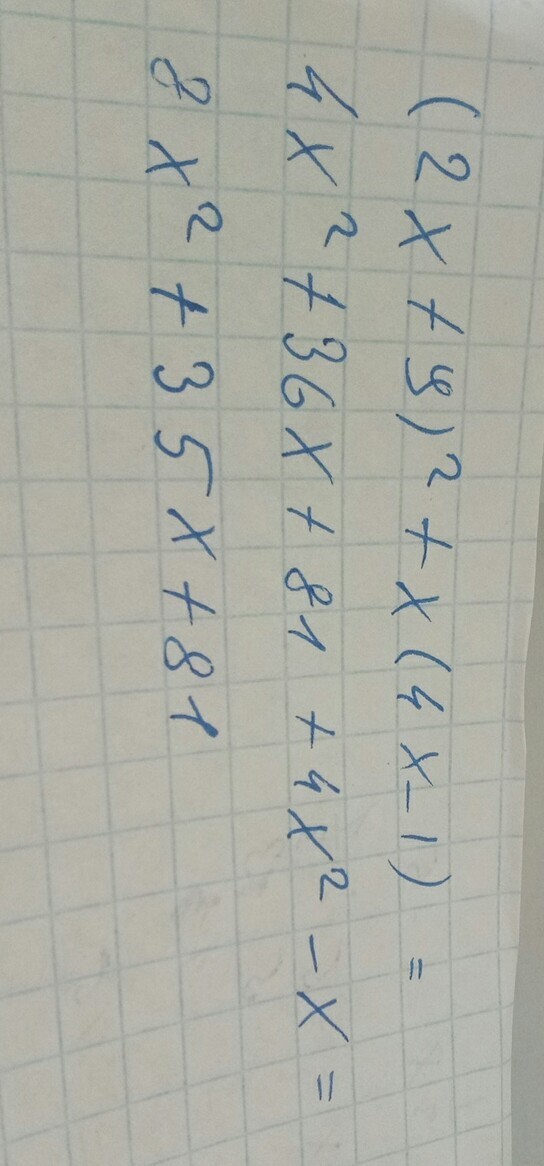 (2x+9)²+x(4x-1)=
4x²+36x+81+4x²-x=
8x²+35x+81